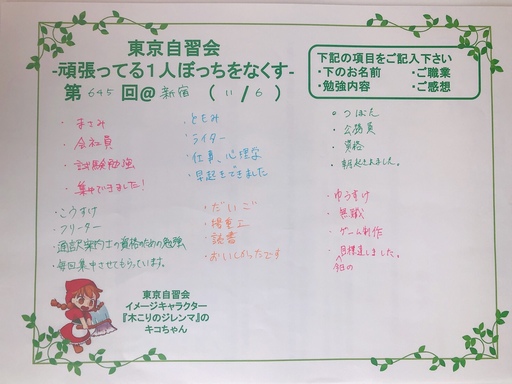 東京自習会
-頑張ってる1人ぼっちをなくす-
第 645 回@ 新宿 ( 11 / 6 )
下記の項目をご記入下さい
・下のお名前 ・ご職業
・勉強内容 ・ご感想
・まてみ
・会社員
・試験勉強
・集中できました!
・ともみ
・ライター
・仕事、心理学
・早起きできました
・つばた
・公務員
・資格
・朝起きれました。
・こうすけ
・フリーター
・通訳案内士の資格のための勉強
・毎回集中させてもらっています。
・だいご
・読書
・おいしかったです
・ゆうすけ
・無職
・ゲーム制作
・今日の目標達しました。
東京自習会
イメージキャラクター
『木こりのジレンマ』の
キコちゃん